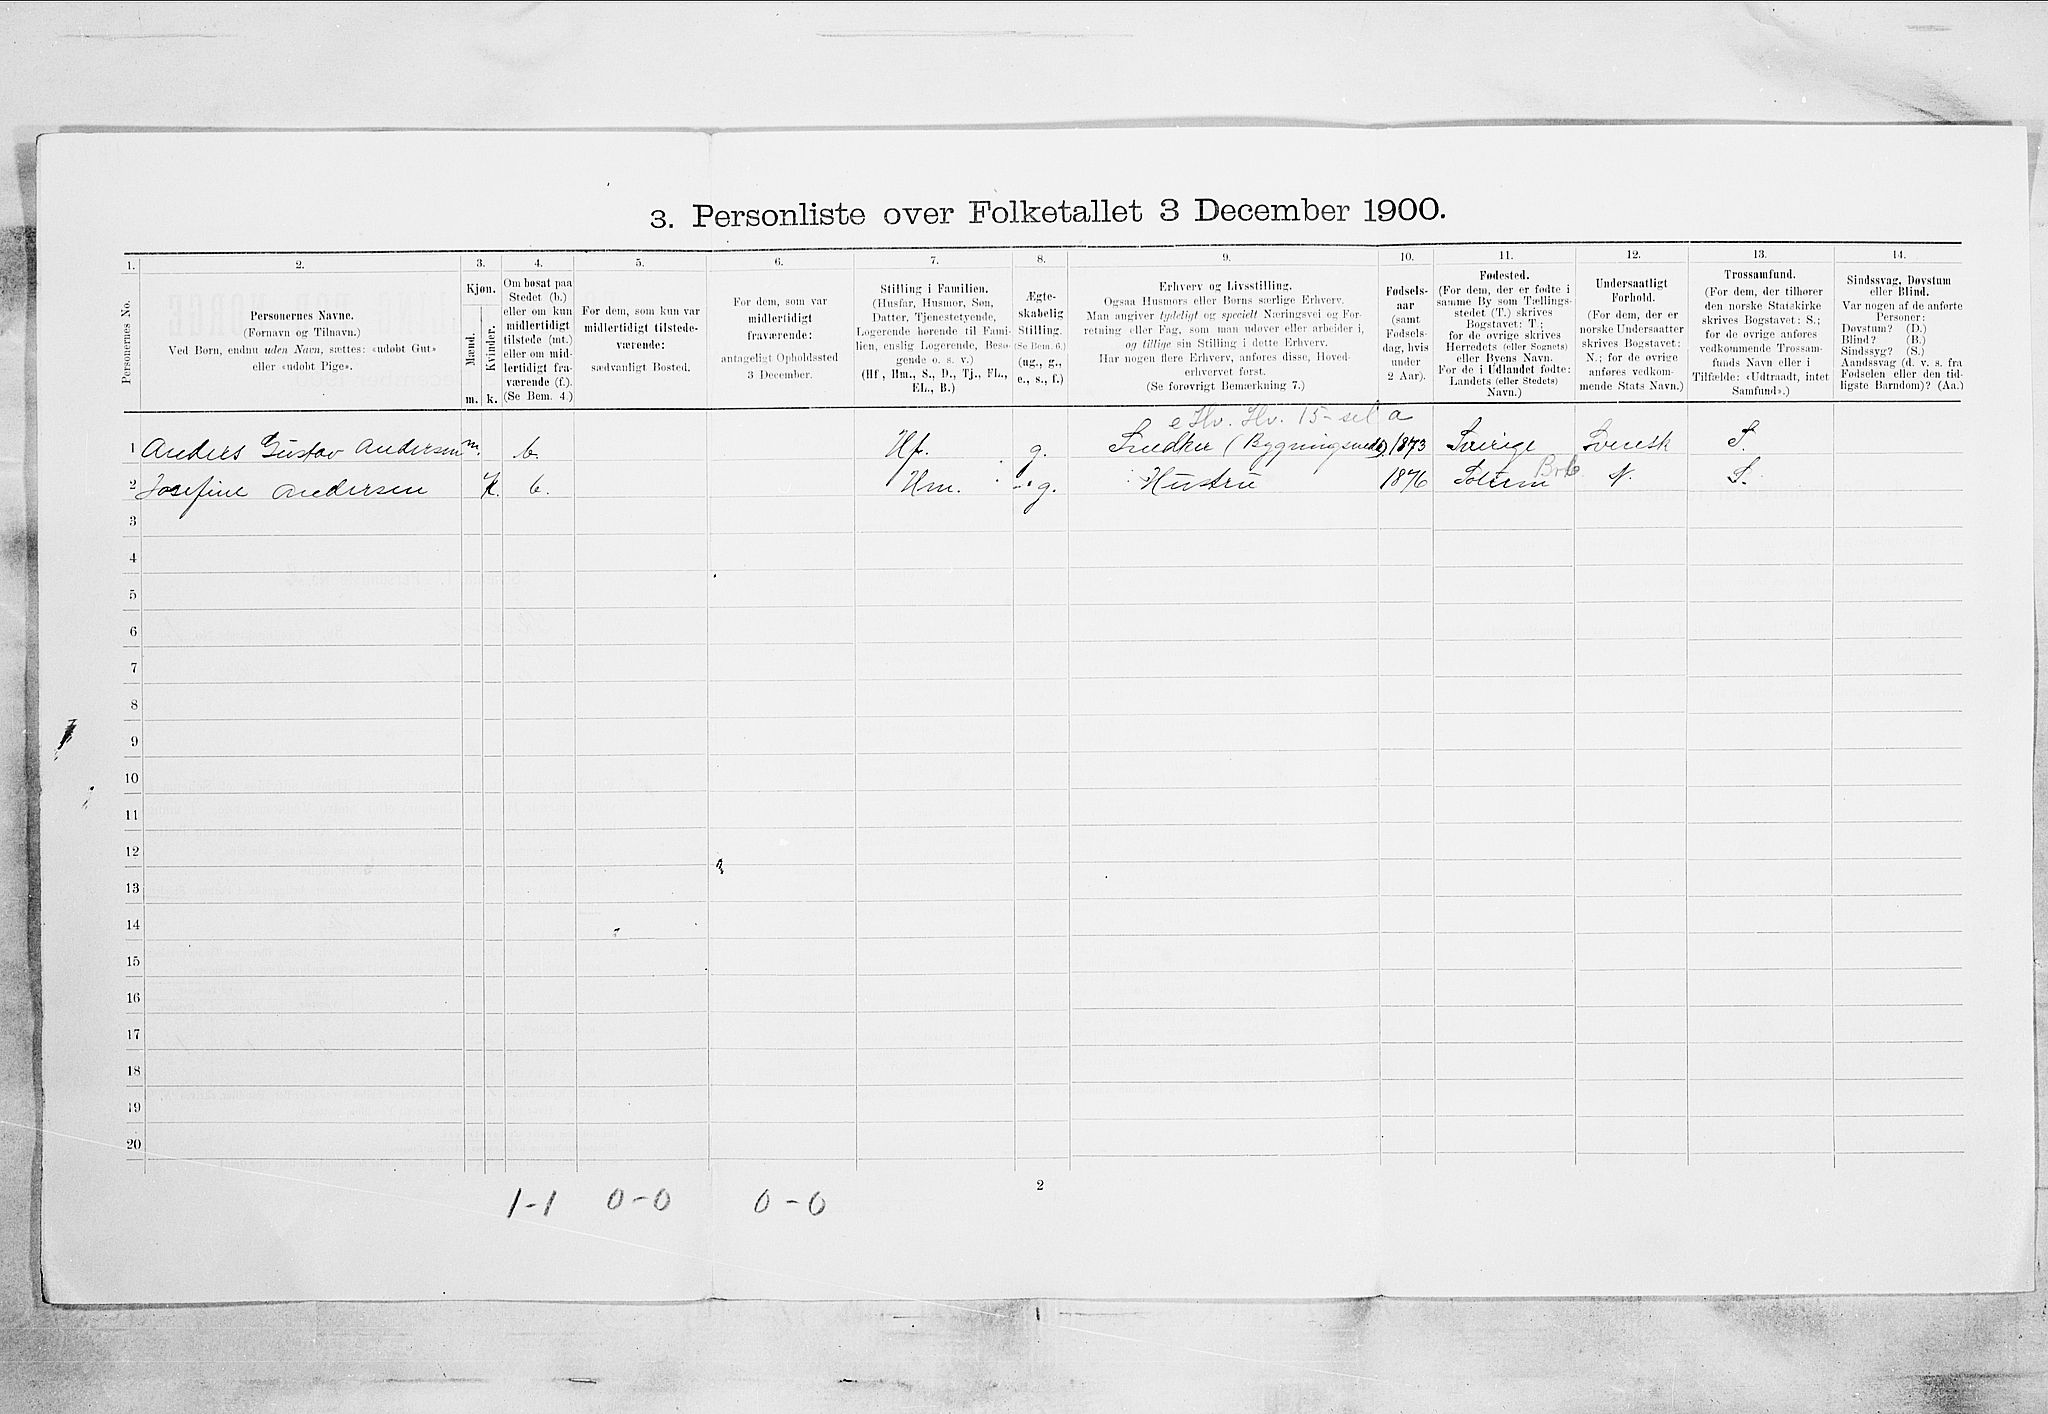 3. Personliste over Folketallet 3 December 1900.
1. 2. 3. 4. 5. 6. 7. 8. 9. 10. 11. 12. 13. 14.
Personernes No.
Personernes Navne.
(Fornavn og Tilnavn.)
Ved Børn, endnu uden Navn, sættes: «udøbt Gut»
eller «udøbt Pige».
Kjøn.
Mænd.
Kvinder.
m. k.
Om bosat paa
Stedet (b.)
eller om kun
midlertidigt
tilstede (mt.)
eller om mid-
lertidigt fra-
værende (f.).
(Se Bem. 4.)
For dem, som kun var
midlertidigt tilstede-
værende:
sædvanligt Bosted.
For dem, som var
midlertidigt
fraværende:
antageligt Opholdssted
3 December.
Stilling i Familien.
(Husfar, Husmor, Søn,
Datter, Tjenestetyende,
Logerende hørende til Fami-
lien, enslig Logerende, Besø-
gende o. s. v.)
(Hf., Hm., S., D., Tj., FL.,
EL., B.)
Ægte-
skabelig
Stilling.
(Se Bem. 6.)
(ug., g.,
e., s., f.)
Erhverv og Livsstilling.
Ogsaa Husmors eller Børns særlige Erhverv.
Man angiver tydeligt og specielt Næringsvei og For-
retning eller Fag, som man udøver eller arbeider i,
og tillige sin Stilling i dette Erhverv.
Har nogen flere Erhverv, anføres disse, Hoved-
erhvervet først.
(Se forøvrigt Bemærkning 7.)
Fødsels-
aar
(samt
Fødsels-
dag, hvis
under
2 Aar).
Fødested.
(For dem, der er fødte i
samme By som Tællings-
stedet (T.) skrives
Bogstavet: T;
for de øvrige skrives
Herredets (eller Sognets)
eller Byens Navn.
For de i Udlandet fødte:
Landets (eller Stedets)
Navn.)
Undersaatligt
Forhold.
(For dem, der er
norske Undersaatter
skrives Bogstavet:
N.; for de øvrige
anføres vedkom-
mende Stats Navn.)
Trossamfund.
(For dem, der tilhører
den norske Statskirke
skrives Bogstavet: S.;
for de øvrige anføres
vedkommende Trossam-
funds Navn eller i
Tilfælde: «Udtraadt, intet
Samfund».)
Sindssvag, Døvstum
eller Blind.
Var nogen af de anførte
Personer:
Døvstum? (D.)
Blind? (B.)
Sindssyg? (S.)
Aandssvag (d. v. s. fra
Fødselen eller den tid-
ligste Barndom)? (Aa.)
e Hv. Hv. 15- sel a
1 Anders Gustav Andersen m. b. Hf. g. Snedker (Bygningssned.) 1873 Sverige Svensk S.
2 Josefine Andersen K. b. Hm. g. Hustru 1876 Solum N. S.
3
4
5
6
7
8
9
10
11
12
13
14
15
16
17
18
19
20
1-1 0-0 0-0
2